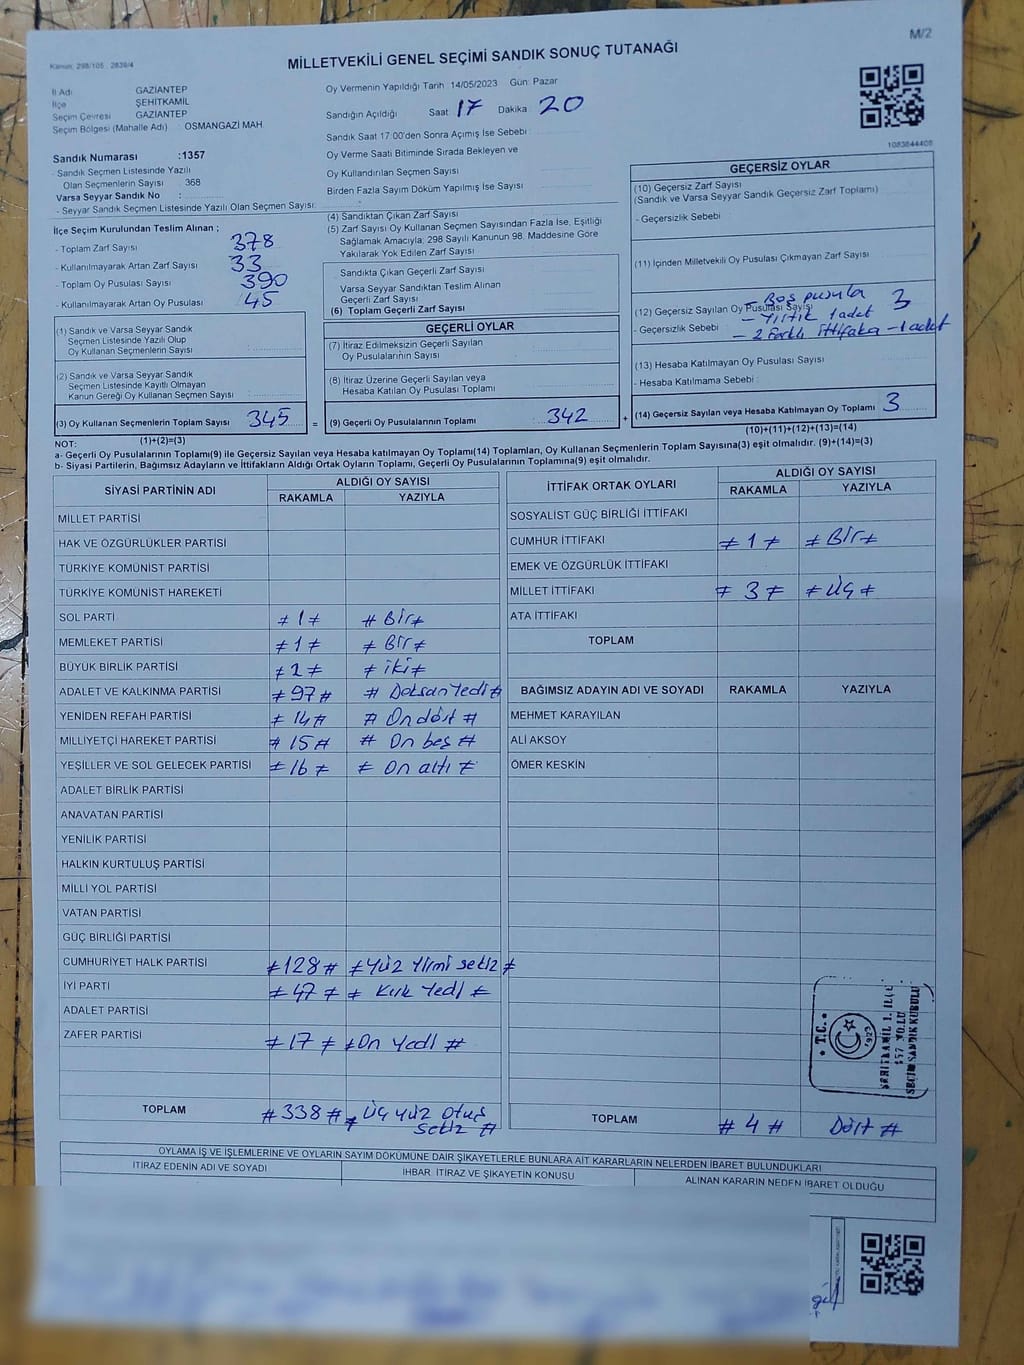 M/2
Kanun: 298/105, 2839/4
MİLLETVEKİLİ GENEL SEÇİMİ SANDIK SONUÇ TUTANAĞI
İl Adı GAZİANTEP
İlçe ŞEHİTKAMİL
Seçim Çevresi GAZİANTEP
Seçim Bölgesi (Mahalle Adı) : OSMANGAZİ MAH
Sandık Numarası :1357
- Sandık Seçmen Listesinde Yazılı
Olan Seçmenlerin Sayısı : 368
Varsa Seyyar Sandık No :
- Seyyar Sandık Seçmen Listesinde Yazılı Olan Seçmen Sayısı:
İlçe Seçim Kurulundan Teslim Alınan ;
- Toplam Zarf Sayısı 378
- Kullanılmayarak Artan Zarf Sayısı 33
- Toplam Oy Pusulası Sayısı 390
- Kullanılmayarak Artan Oy Pusulası 45
(1) Sandık ve Varsa Seyyar Sandık
Seçmen Listesinde Yazılı Olup
Oy Kullanan Seçmenlerin Sayısı :
(2) Sandık ve Varsa Seyyar Sandık
Seçmen Listesinde Kayıtlı Olmayan
Kanun Gereği Oy Kullanan Seçmen Sayısı :
(3) Oy Kullanan Seçmenlerin Toplam Sayısı : 345 =
(1)+(2)=(3)
Oy Vermenin Yapıldığı Tarih 14/05/2023 Gün: Pazar
Sandığın Açıldığı Saat 17 Dakika 20
Sandık Saat 17:00'den Sonra Açımış İse Sebebi :
Oy Verme Saati Bitiminde Sırada Bekleyen ve
Oy Kullandırılan Seçmen Sayısı :
Birden Fazla Sayım Döküm Yapılmış İse Sayısı :
(4) Sandıktan Çıkan Zarf Sayısı
(5) Zarf Sayısı Oy Kullanan Seçmen Sayısından Fazla İse, Eşitliği
Sağlamak Amacıyla; 298 Sayılı Kanunun 98. Maddesine Göre
Yakılarak Yok Edilen Zarf Sayısı
Sandıkta Çıkan Geçerli Zarf Sayısı :
Varsa Seyyar Sandıktan Teslim Alınan
Geçerli Zarf Sayısı :
(6) Toplam Geçerli Zarf Sayısı :
GEÇERLİ OYLAR
(7) İtiraz Edilmeksizin Geçerli Sayılan
Oy Pusulalarının Sayısı :
(8) İtiraz Üzerine Geçerli Sayılan veya
Hesaba Katılan Oy Pusulası Toplamı :
(9) Geçerli Oy Pusulalarının Toplamı : 342 +
1083844408
GEÇERSİZ OYLAR
(10) Geçersiz Zarf Sayısı
(Sandık ve Varsa Seyyar Sandık Geçersiz Zarf Toplamı)
- Geçersizlik Sebebi :
(11) İçinden Milletvekili Oy Pusulası Çıkmayan Zarf Sayısı :
(12) Geçersiz Sayılan Oy Pusulası Sayısı : 3
- Boş pusula
- Geçersizlik Sebebi : - Yırtık 1 adet
- 2 Farklı ittifaka - 1 adet
(13) Hesaba Katılmayan Oy Pusulası Sayısı :
- Hesaba Katılmama Sebebi :
(14) Geçersiz Sayılan veya Hesaba Katılmayan Oy Toplamı : 3
(10)+(11)+(12)+(13)=(14)
NOT:
a- Geçerli Oy Pusulalarının Toplamı(9) ile Geçersiz Sayılan veya Hesaba katılmayan Oy Toplamı(14) Toplamları, Oy Kullanan Seçmenlerin Toplam Sayısına(3) eşit olmalıdır. (9)+(14)=(3)
b- Siyasi Partilerin, Bağımsız Adayların ve İttifakların Aldığı Ortak Oyların Toplamı, Geçerli Oy Pusulalarının Toplamına(9) eşit olmalıdır.
SİYASİ PARTİNİN ADI ALDIĞI OY SAYISI
RAKAMLA YAZIYLA
MİLLET PARTİSİ
HAK VE ÖZGÜRLÜKLER PARTİSİ
TÜRKİYE KOMÜNİST PARTİSİ
TÜRKİYE KOMÜNİST HAREKETİ
SOL PARTİ ≠ 1 ≠ # Bir ≠
MEMLEKET PARTİSİ ≠ 1 ≠ ≠ Bir ≠
BÜYÜK BİRLİK PARTİSİ ≠ 2 ≠ ≠ iki ≠
ADALET VE KALKINMA PARTİSİ ≠ 97 # # Doksan Yedi #
YENİDEN REFAH PARTİSİ ≠ 14 # # On dört #
MİLLİYETÇİ HAREKET PARTİSİ ≠ 15 # # On beş #
YEŞİLLER VE SOL GELECEK PARTİSİ ≠ 16 ≠ ≠ On altı ≠
ADALET BİRLİK PARTİSİ
ANAVATAN PARTİSİ
YENİLİK PARTİSİ
HALKIN KURTULUŞ PARTİSİ
MİLLİ YOL PARTİSİ
VATAN PARTİSİ
GÜÇ BİRLİĞİ PARTİSİ
CUMHURİYET HALK PARTİSİ ≠ 128 # ≠ Yüz Yirmi sekiz ≠
İYİ PARTİ ≠ 47 ≠ ≠ Kırk Yedi ≠
ADALET PARTİSİ
ZAFER PARTİSİ ≠ 17 ≠ ≠ On Yedi #
TOPLAM # 338 # ≠ Üç yüz otuz
sekiz #
İTTİFAK ORTAK OYLARI ALDIĞI OY SAYISI
RAKAMLA YAZIYLA
SOSYALİST GÜÇ BİRLİĞİ İTTİFAKI
CUMHUR İTTİFAKI ≠ 1 ≠ ≠ Bir ≠
EMEK VE ÖZGÜRLÜK İTTİFAKI
MİLLET İTTİFAKI ≠ 3 ≠ ≠ Üç ≠
ATA İTTİFAKI
TOPLAM
BAĞIMSIZ ADAYIN ADI VE SOYADI RAKAMLA YAZIYLA
MEHMET KARAYILAN
ALİ AKSOY
ÖMER KESKİN
TOPLAM # 4 # Dört #
T.C.
1923
ŞEHİTKAMİL 1. İLÇE
SEÇİM SANDIK KURULU
OYLAMA İŞ VE İŞLEMLERİNE VE OYLARIN SAYIM DÖKÜMÜNE DAİR ŞİKAYETLERLE BUNLARA AİT KARARLARIN NELERDEN İBARET BULUNDUKLARI
İTİRAZ EDENİN ADI VE SOYADI İHBAR, İTİRAZ VE ŞİKAYETİN KONUSU ALINAN KARARIN NEDEN İBARET OLDUĞU